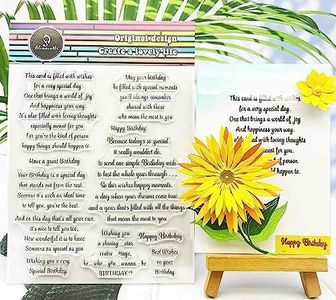 Original design
Create a lovely life
This card is filled with wishes
for a very special day.
One that brings a world of joy
And happiness your way.
It's also filled with loving thoughts
especially meant for you
For you're the kind of person
happy things should happen to.
Have a great Birthday
Your Birthday is a special day
that stands out from the rest.
Because it's not an ideal time
to tell you you're the best.
And on this day that's all your own.
it's not too tell you too,
How wonderful it is to have
Someone as special as you
Wishing you a very
Special Birthday
May your birthday
be filled with special moments
you'll always remember
shared with those
who mean the most to you
Happy Birthday
Because today's so special.
it really wouldn't do.
to send one simple Birthday wish
to last the whole day through....
So this wishes happy moments.
a day when your dreams come true
and a year that's filled with all the things
that mean the most to you.
Wishing you
a shining
star
water
Magic,
Happy
Birthday
Best Wishes
to you
Birthday
BIRTHDAY!!
This card is filled with wishes
for a very special day.
One that brings a world of joy
And happiness your way.
filled with loving thoughts
meant for you.
kind of person
should happen to.
Happy Birthday